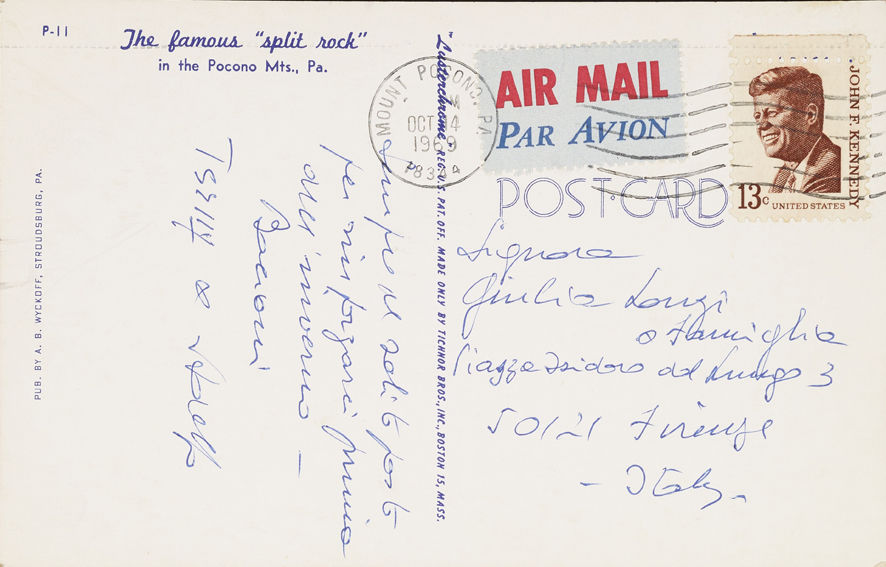 P-11
The famous "split rock"
in the Pocono Mts., Pa.
PUB. BY A. B. WYCKOFF, STROUDSBURG, PA.
"Lusterchrome" REG. U.S. PAT. OFF. MADE ONLY BY TICHNOR BROS., INC., BOSTON 15, MASS.
MOUNT POCONO, PA
OCT 14
1969
18344
AIR MAIL
PAR AVION
JOHN F. KENNEDY
13c UNITED STATES
POST CARD
Sempre al solito posto
per rinforzarci prima
dell'inverno —
Bacioni
Signora
Giulia
e Famiglia
Piazza Isidoro del Lungo 3
50121 Firenze
- Italy -